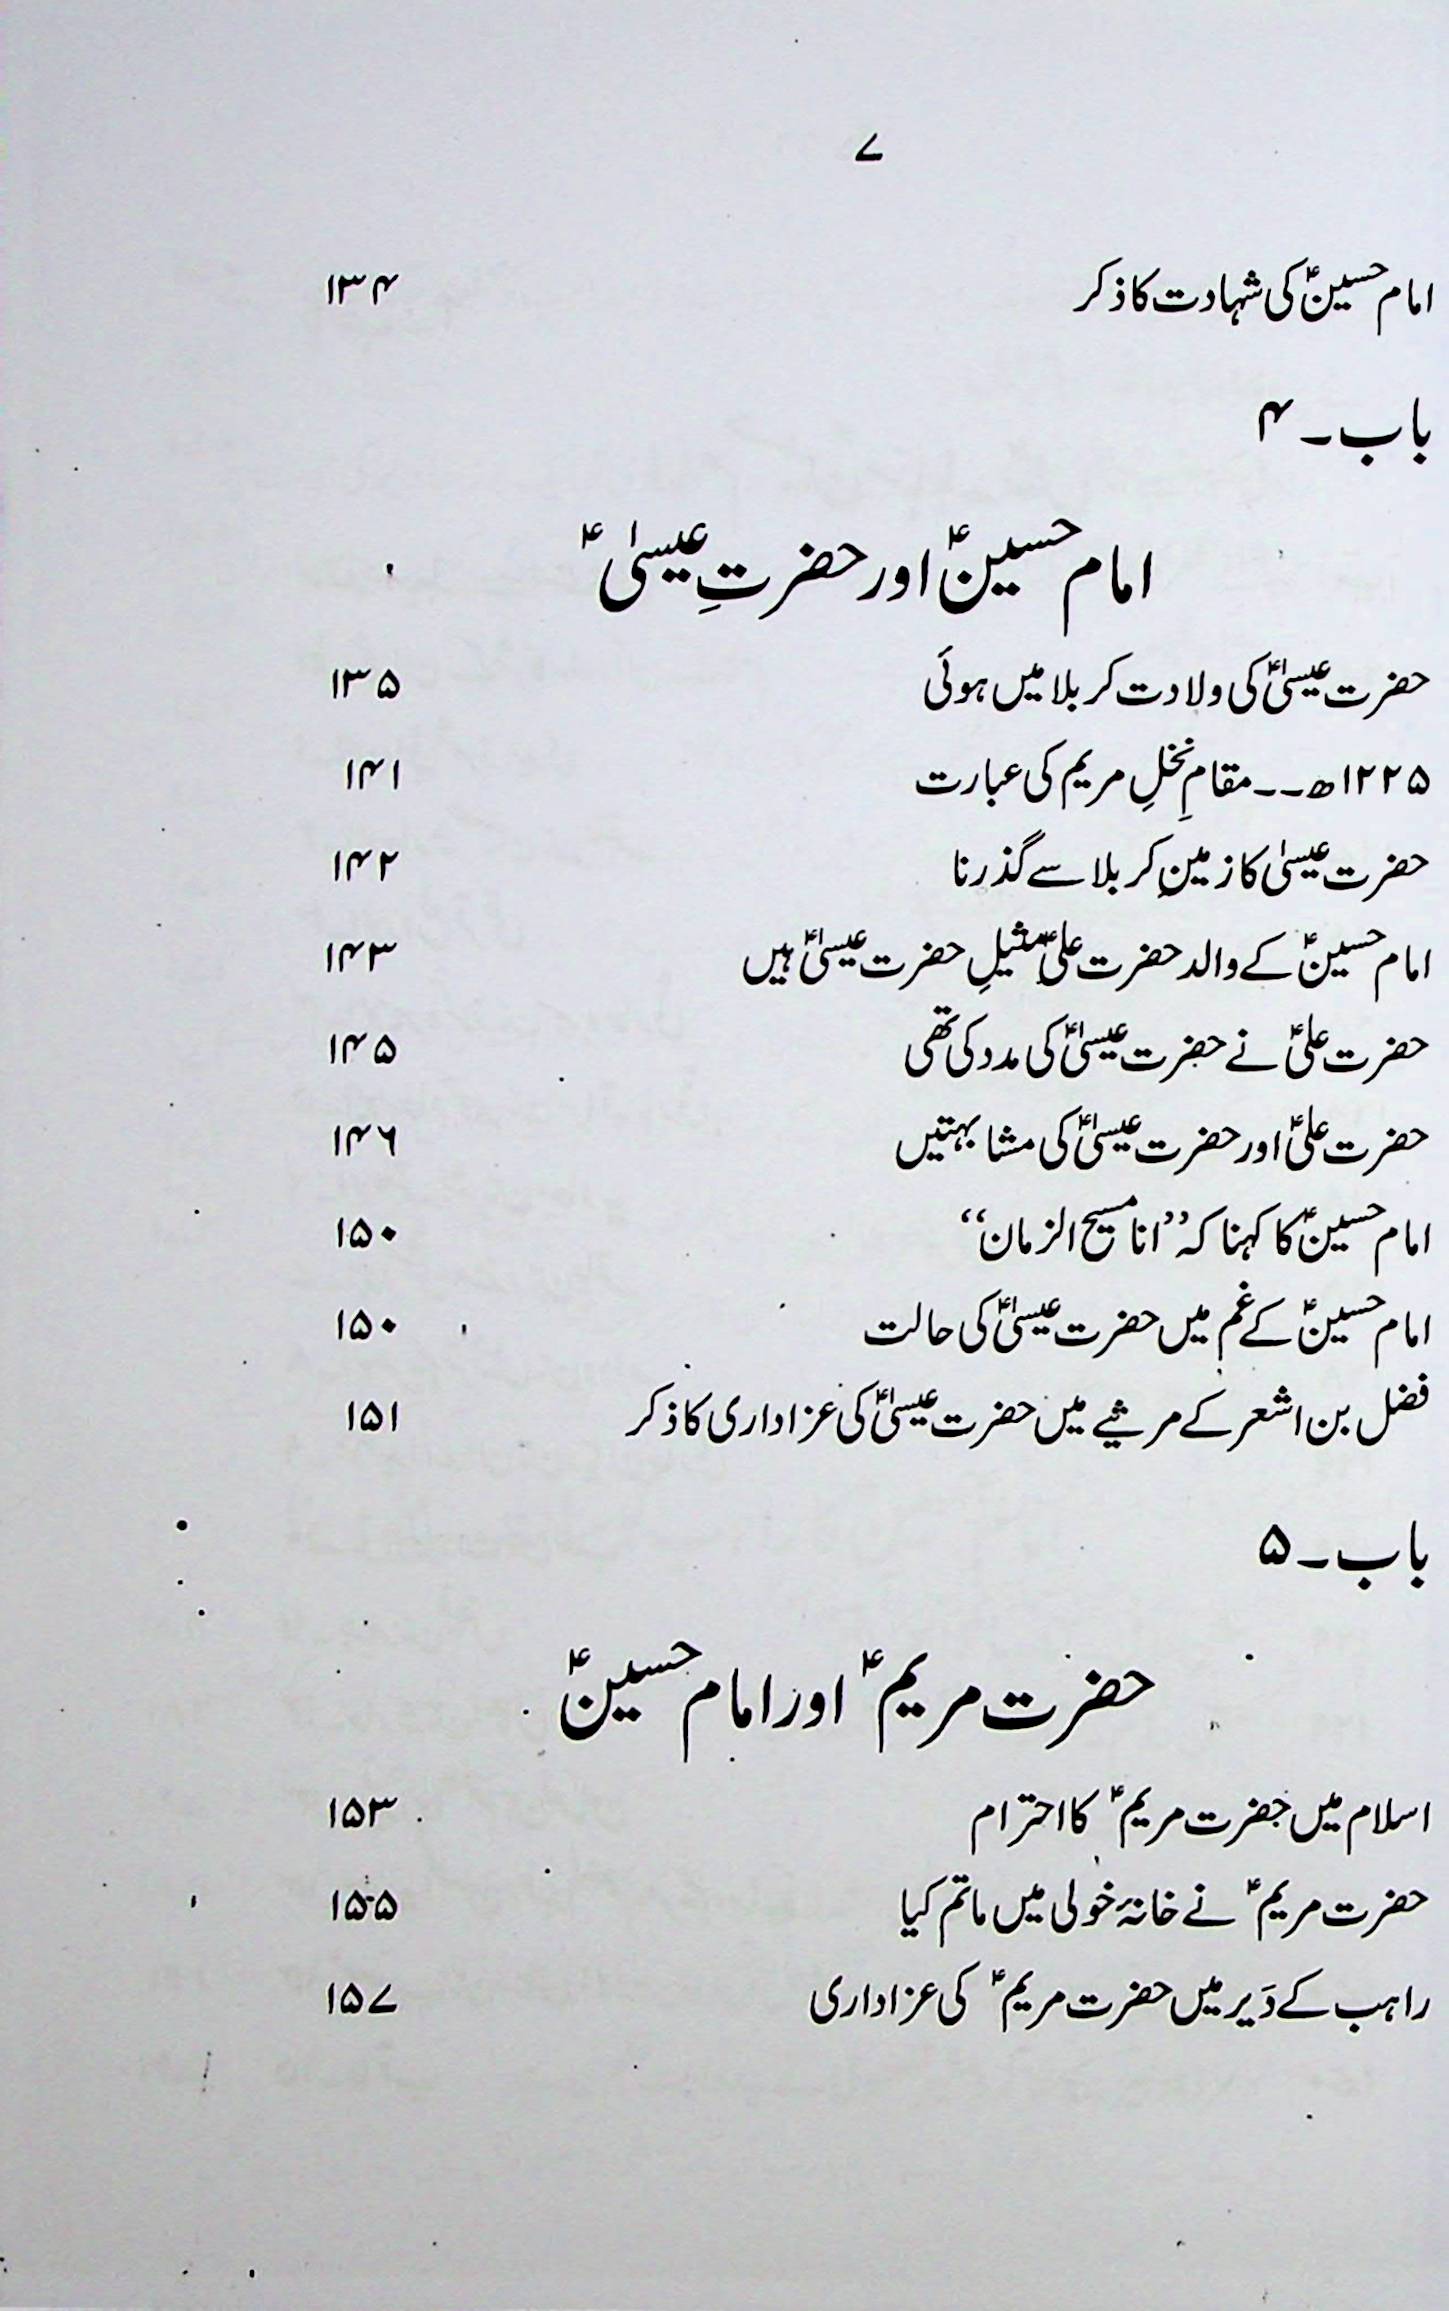 ۷
امام حسینؑ کی شہادت کا ذکر ۱۳۴
باب۔۴
امام حسینؑ اور حضرتِ عیسیٰؑ
حضرت عیسیٰؑ کی ولادت کربلا میں ہوئی ۱۳۵
۱۲۲۵ھ۔۔مقامِ نخلِ مریم کی عبارت ۱۴۱
حضرت عیسیٰ کا زمینِ کربلا سے گذرنا ۱۴۲
امام حسینؑ کے والد حضرت علیؑ مثیلِ حضرت عیسیٰؑ ہیں ۱۴۳
حضرت علیؑ نے حضرت عیسیٰؑ کی مدد کی تھی ۱۴۵
حضرت علیؑ اور حضرت عیسیٰؑ کی مشابہتیں ۱۴۶
امام حسینؑ کا کہنا کہ ”انا مسیح الزمان“ ۱۵۰
امام حسینؑ کے غم میں حضرت عیسیٰؑ کی حالت ۱۵۰
فضل بن اشعر کے مرثیے میں حضرت عیسیٰؑ کی عزاداری کا ذکر ۱۵۱
باب۔۵
حضرت مریمؑ اور امام حسینؑ
اسلام میں حضرت مریمؑ کا احترام ۱۵۳
حضرت مریمؑ نے خانۂ خولی میں ماتم کیا ۱۵۵
راہب کے دَیر میں حضرت مریمؑ کی عزاداری ۱۵۷